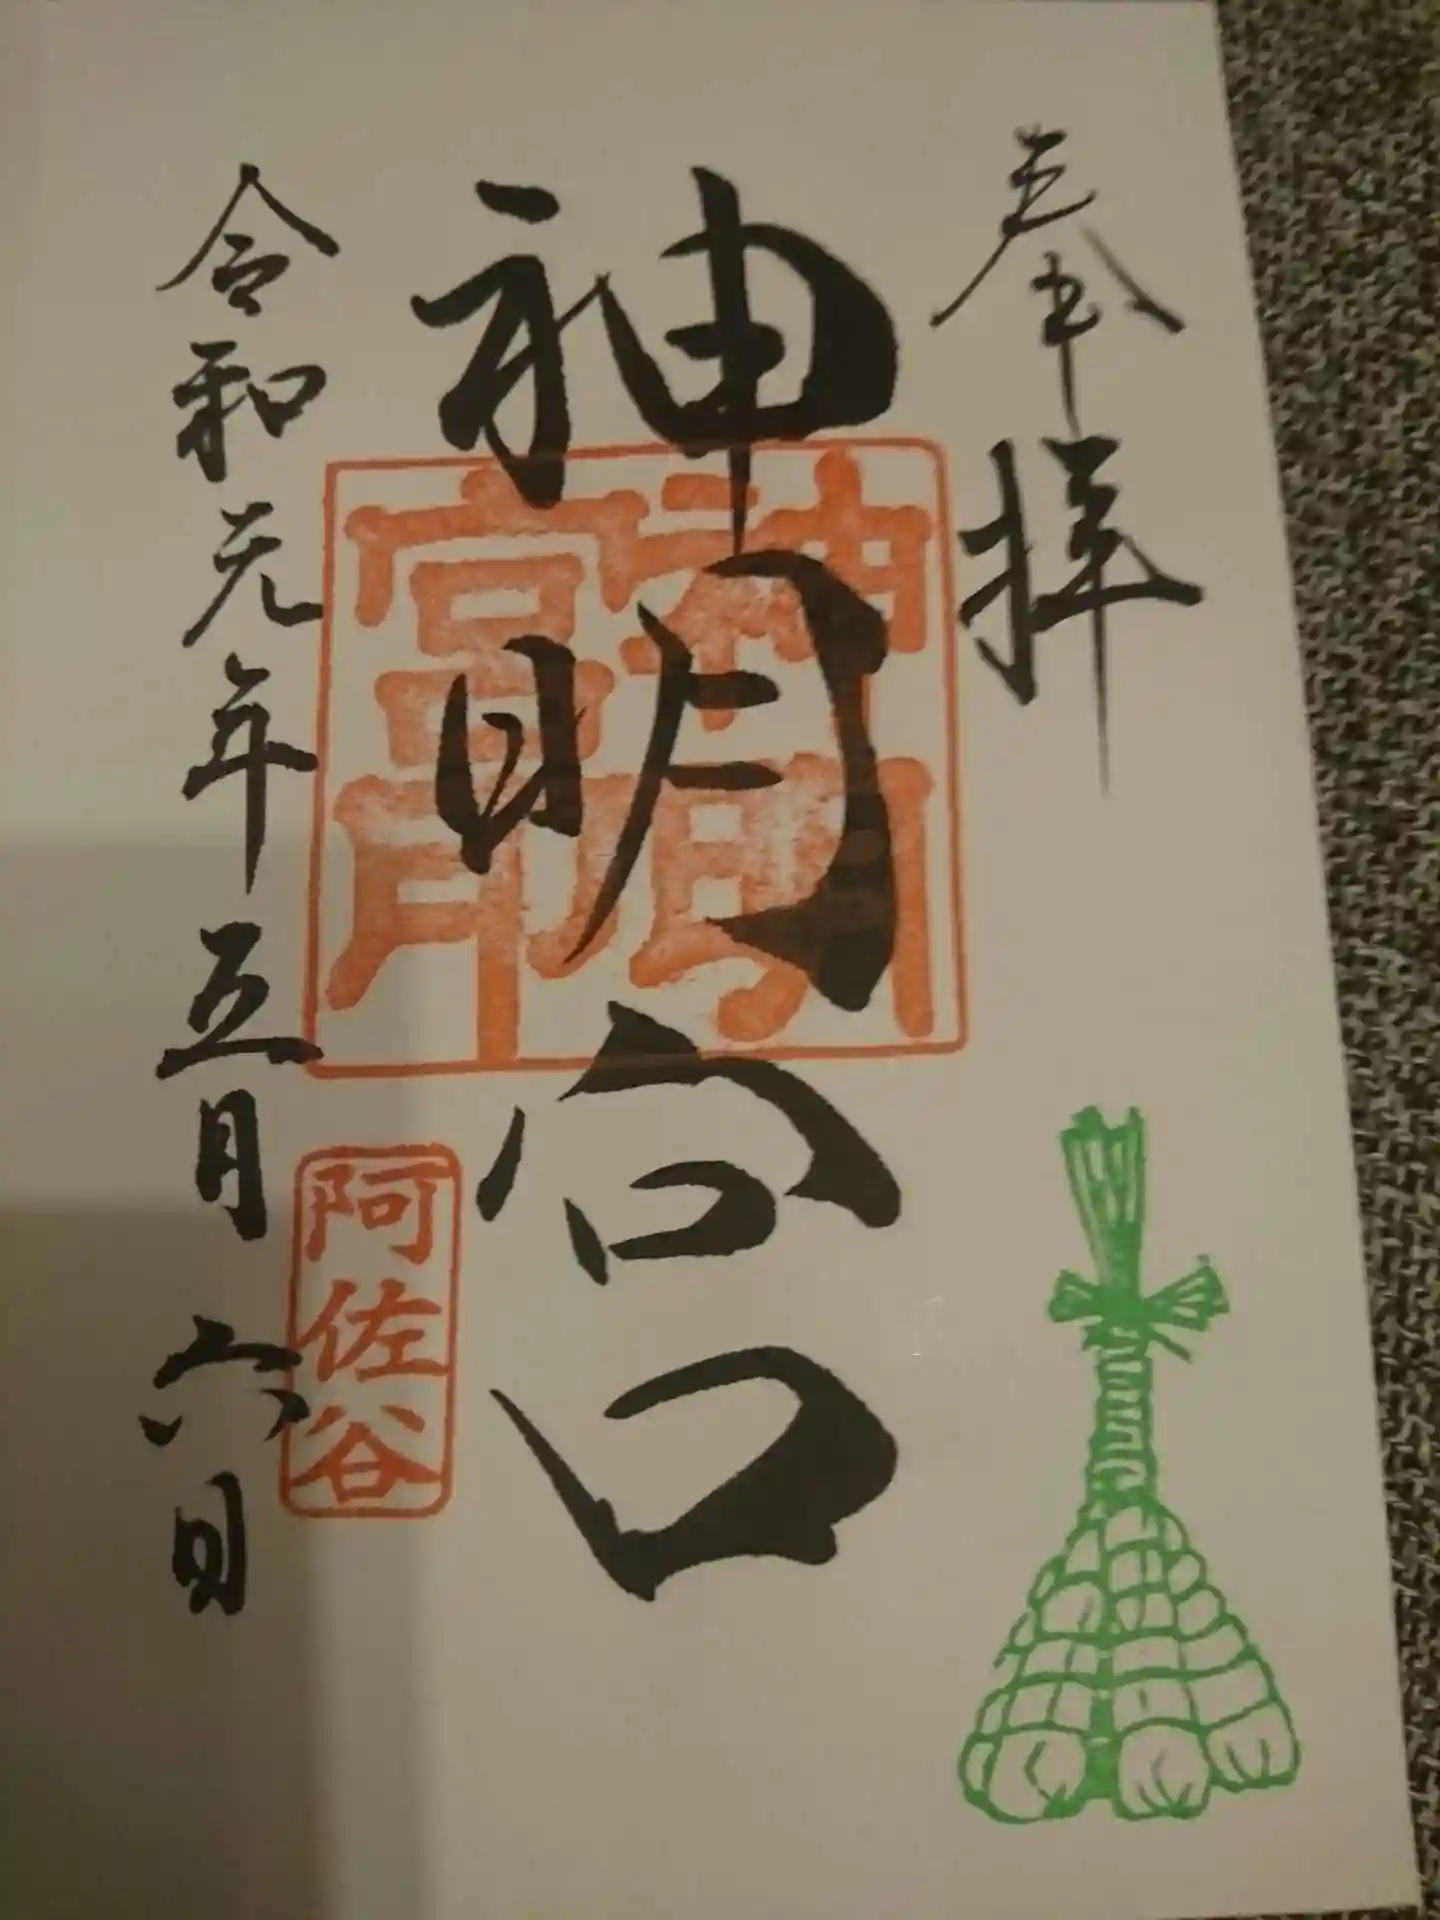 奉拝
神明宮
神明宮印
阿佐谷
令和元年五月六日